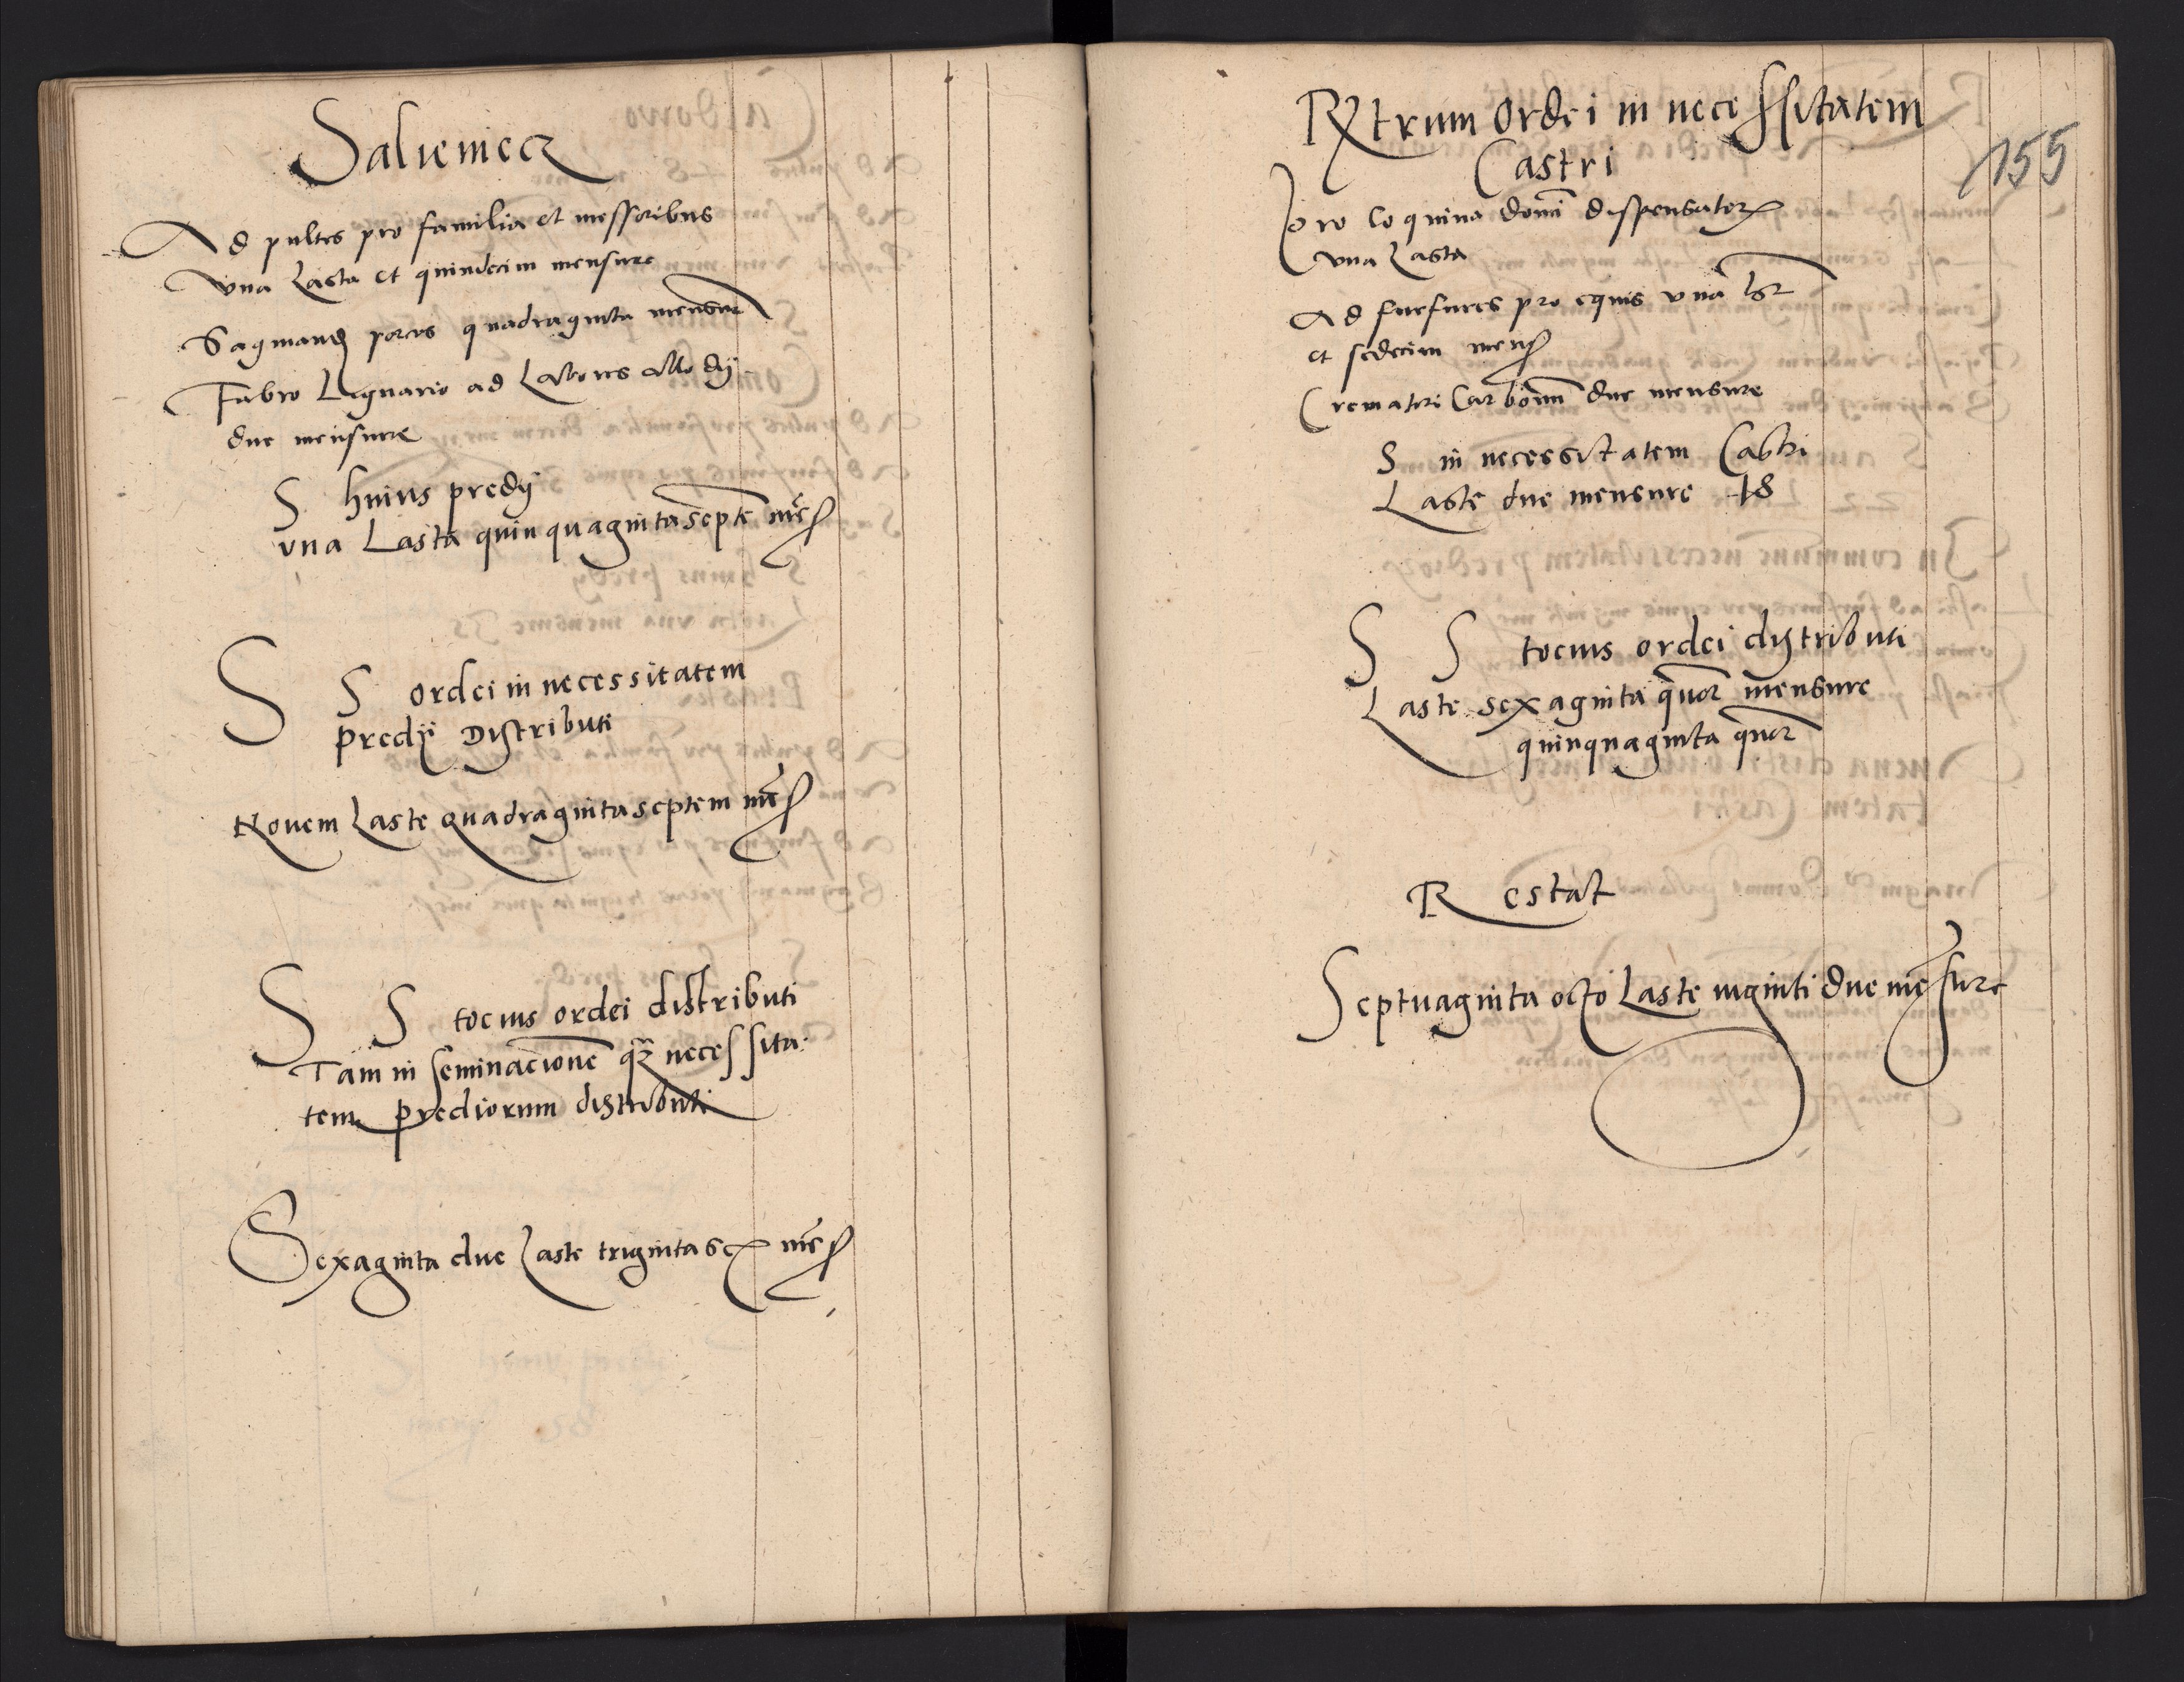 Salieniecz
Ad pultes pro familia et messoribus
vna Lasta et quindecim mensure
Saginand porcos quadraginta mensur
Fabro Lignario ad Labores allodij
due mensure
S huius predij
vna Lasta quinquaginta septe mēs
S S ordei in necessitatem
predij Distributi
Nouem Laste quadraginta septem mēs
S S tocius ordei distributi
Tam in seminacionē qz necessita:
tem prediorum distributi
Sexaginta due Laste triginta sex mēs
ordei in necessitatem
Castri
155
Pro Coquina domi dispensator
vna Lasta
Ad furfures pro equis vna
et sedecim mens
Crematori Carbonum due mensure
S in necessitatem Castri
Laste due mensure 18
S S tocius ordei distributi
Laste sexaginta quor mensure
quinquaginta quor
Restat
Septuaginta octo Laste viginti due mēsure